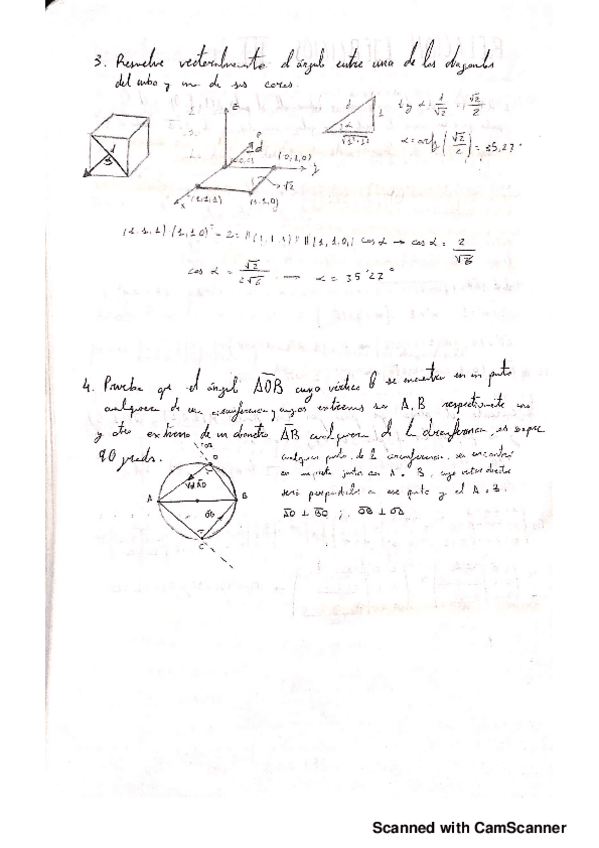 3. Resuelve vectorialmente el ángulo entre una de las diagonales
del cubo y una de sus caras.
d
z
d
(0,1,0)
y
√2
x
(1,1,1)
(1,1,0)
d
1
α
tg α = 1/√2 = √2/2
α = arctg (√2/2) = 35,27°
(1,1,1)·(1,1,0) = 2 = ||(1,1,1)|| ||(1,1,0)|| cos α → cos α = 2/√6
cos α = α = 35'27°
4. Prueba que el ángulo AOB cuyo vértice O se encuentra en un punto
cualquiera de una circunferencia y cuyos extremos son A, B respectivamente uno
y otro extremo de un diámetro AB cualquiera de la circunferencia, es siempre
90 grados.
cualquier punto de la circunferencia, se encontrará
en junto con A y B, cuyo vector
será perpendicular a ese punto y el A y B.
A
B
C